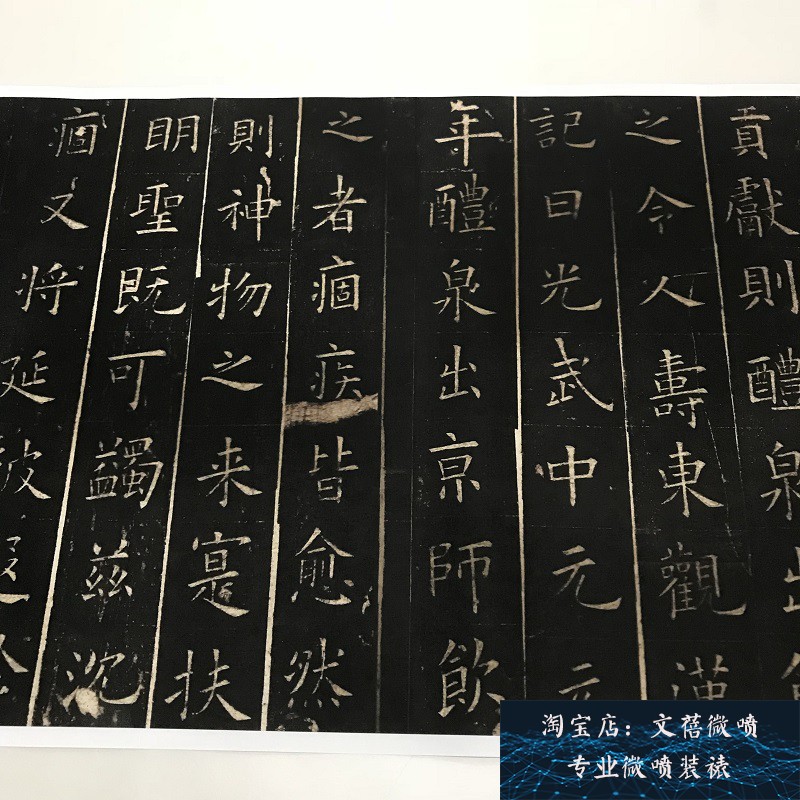 貢獻則醴泉出
之令人壽東觀漢
記曰光武中元元
年醴泉出京師飲
之者痼疾皆愈然
則神物之来寔扶
明聖既可蠲兹沉
痼又将延彼
淘宝店：文蓓微喷
专业微喷装裱